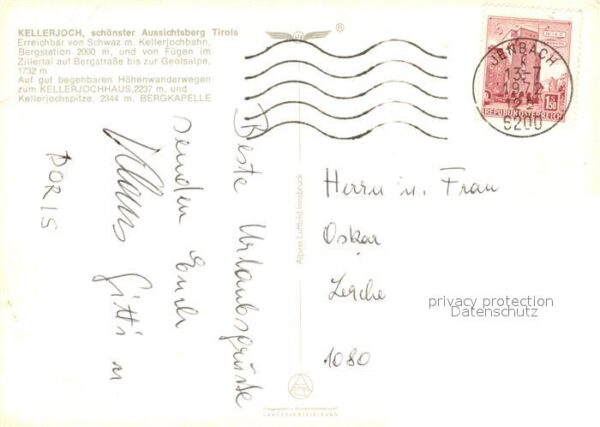 KELLERJOCH, schönster Aussichtsberg Tirols
Erreichbar von Schwaz m. Kellerjochbahn,
Bergstation 2000 m, und von Fügen im
Zillertal auf Bergstraße bis zur Geolsalpe,
1732 m
Auf gut begehbaren Höhenwanderwegen
zum KELLERJOCHHAUS, 2237 m, und
Kellerjochspitze, 2344 m, BERGKAPELLE
JENBACH
13-7
1972
6200
REPUBLIK ÖSTERREICH
1.50
Beste Urlaubsgrüsse
senden Euch
Klaus Gitti u
DORIS
Alpine Luftbild Innsbruck
Herrn u. Frau
Oskar
1080
privacy protection
Datenschutz